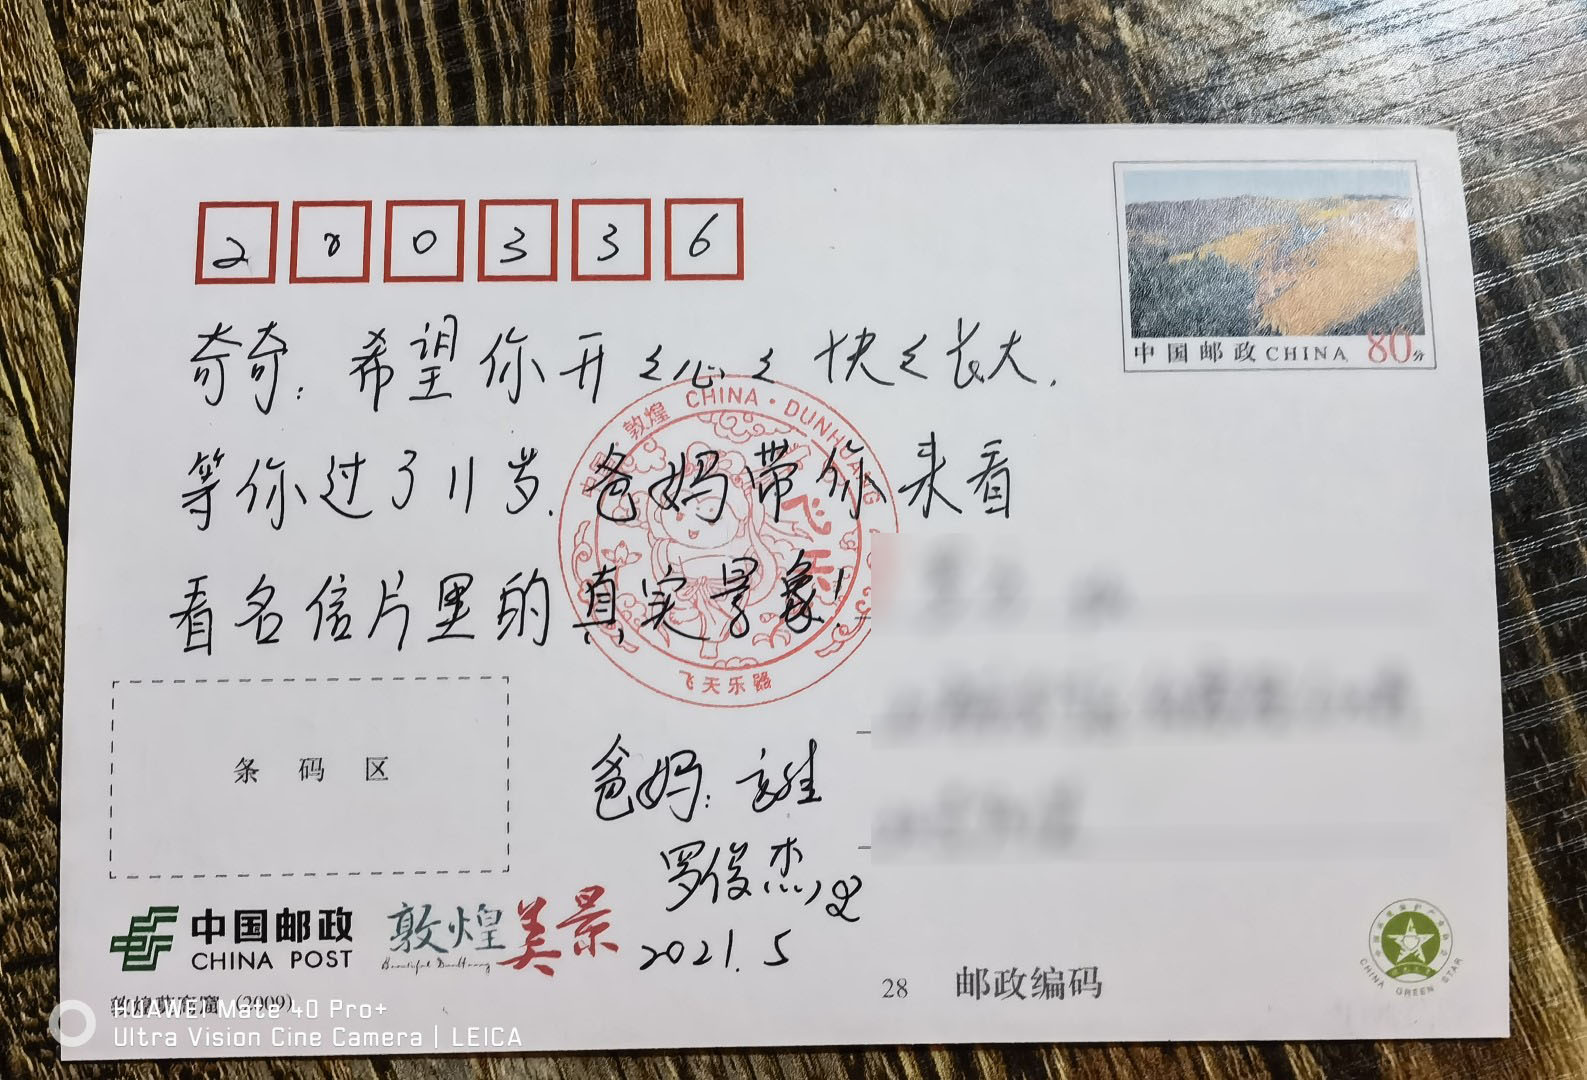 200336
中国邮政 CHINA 80分
奇奇：希望你开々心々快々长大.
等你过了11岁.爸妈带你来看
看名信片里的真实景象！
中国 敦煌 CHINA·DUNHUANG
飞天
飞天乐器
条码区
爸妈：
罗俊杰,
2021.5
中国邮政
CHINA POST
敦煌美景
Beautiful DunHuang
(2009)
28 邮政编码
CHINA GREEN STAR
HUAWEI Mate 40 Pro+
Ultra Vision Cine Camera | LEICA